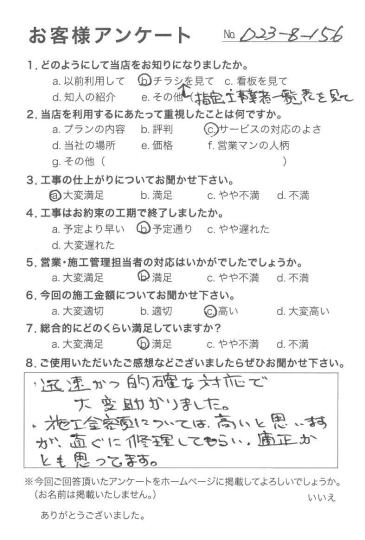 お客様アンケート No. 023-8-156
1. どのようにして当店をお知りになりましたか。
a. 以前利用して b. チラシを見て c. 看板を見て
d. 知人の紹介 e. その他( 指定工事業者一覧表を見て
2. 当店を利用するにあたって重視したことは何ですか。
a. プランの内容 b. 評判 c. サービスの対応のよさ
d. 当社の場所 e. 価格 f. 営業マンの人柄
g. その他( )
3. 工事の仕上がりについてお聞かせ下さい。
a. 大変満足 b. 満足 c. やや不満 d. 不満
4. 工事はお約束の工期で終了しましたか。
a. 予定より早い b. 予定通り c. やや遅れた
d. 大変遅れた
5. 営業・施工管理担当者の対応はいかがでしたでしょうか。
a. 大変満足 b. 満足 c. やや不満 d. 不満
6. 今回の施工金額についてお聞かせ下さい。
a. 大変適切 b. 適切 c. 高い d. 大変高い
7. 総合的にどのくらい満足していますか?
a. 大変満足 b. 満足 c. やや不満 d. 不満
8. ご使用いただいたご感想などございましたらぜひお聞かせ下さい。
・迅速かつ的確な対応で
大変助かりました。
・施工金額については、高いと思いますが
が、直ぐに修理してもらい、適正か
とも思ってます。
※今回ご回答頂いたアンケートをホームページに掲載してよろしいでしょうか。
(お名前は掲載いたしません。) いいえ
ありがとうございました。